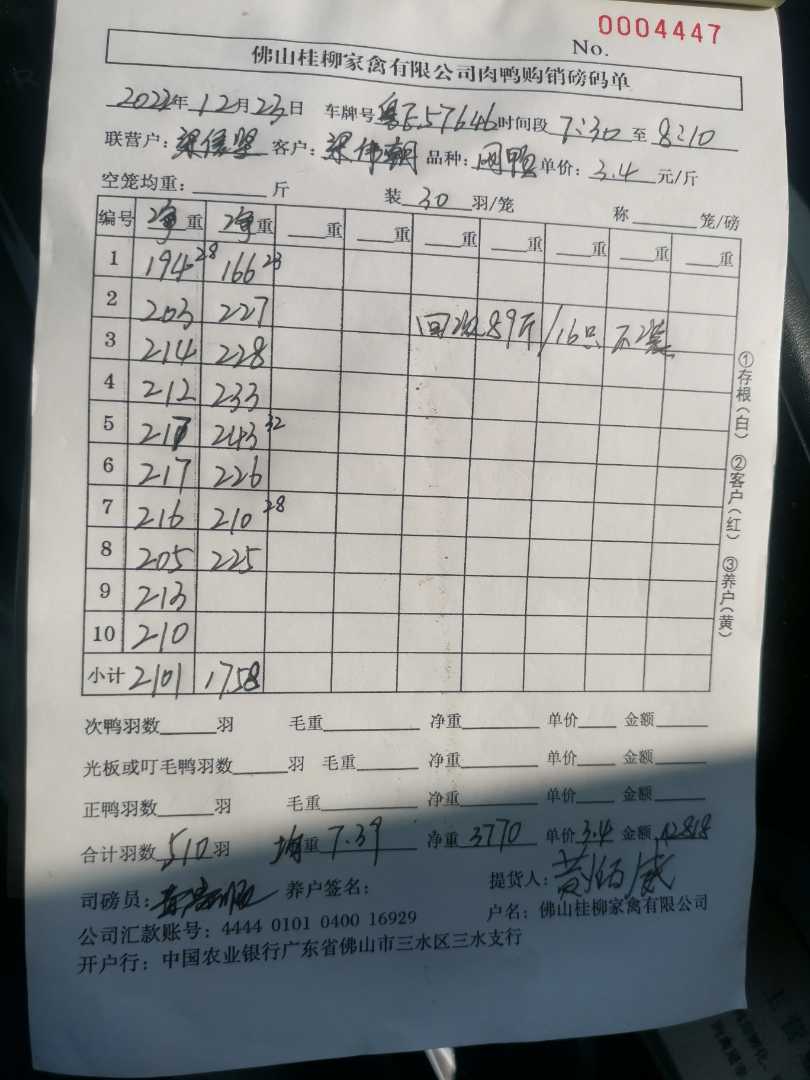 No. 0004447
佛山桂柳家禽有限公司肉鸭购销磅码单
2022年12月23日 车牌号粤E57646时间段7:30至8:10
联营户: 客户:梁伟朝 品种: 单价:3.4元/斤
空笼均重:______斤 装30羽/笼 称______笼/磅
编号 净重 净重 ___重 ___重 ___重 ___重 ___重 ___重 ___重
1 194 28 166 23
2 203 227
回 89斤/16只 不装
3 214 228
4 212 233
5 217 243 32
6 217 226
7 216 210 28
8 205 225
9 213
10 210
小计 2101 1758
①存根(白) ②客户(红) ③养户(黄)
次鸭羽数_____羽 毛重_____ 净重_____ 单价____ 金额____
光板或叮毛鸭羽数_____羽 毛重_____ 净重_____ 单价____ 金额____
正鸭羽数_____羽 毛重_____ 净重_____ 单价____ 金额____
合计羽数510羽 均重7.39 净重3770 单价3.4 金额12818
司磅员: 养户签名: 提货人:
公司汇款账号:4444 0101 0400 16929 户名:佛山桂柳家禽有限公司
开户行:中国农业银行广东省佛山市三水区三水支行